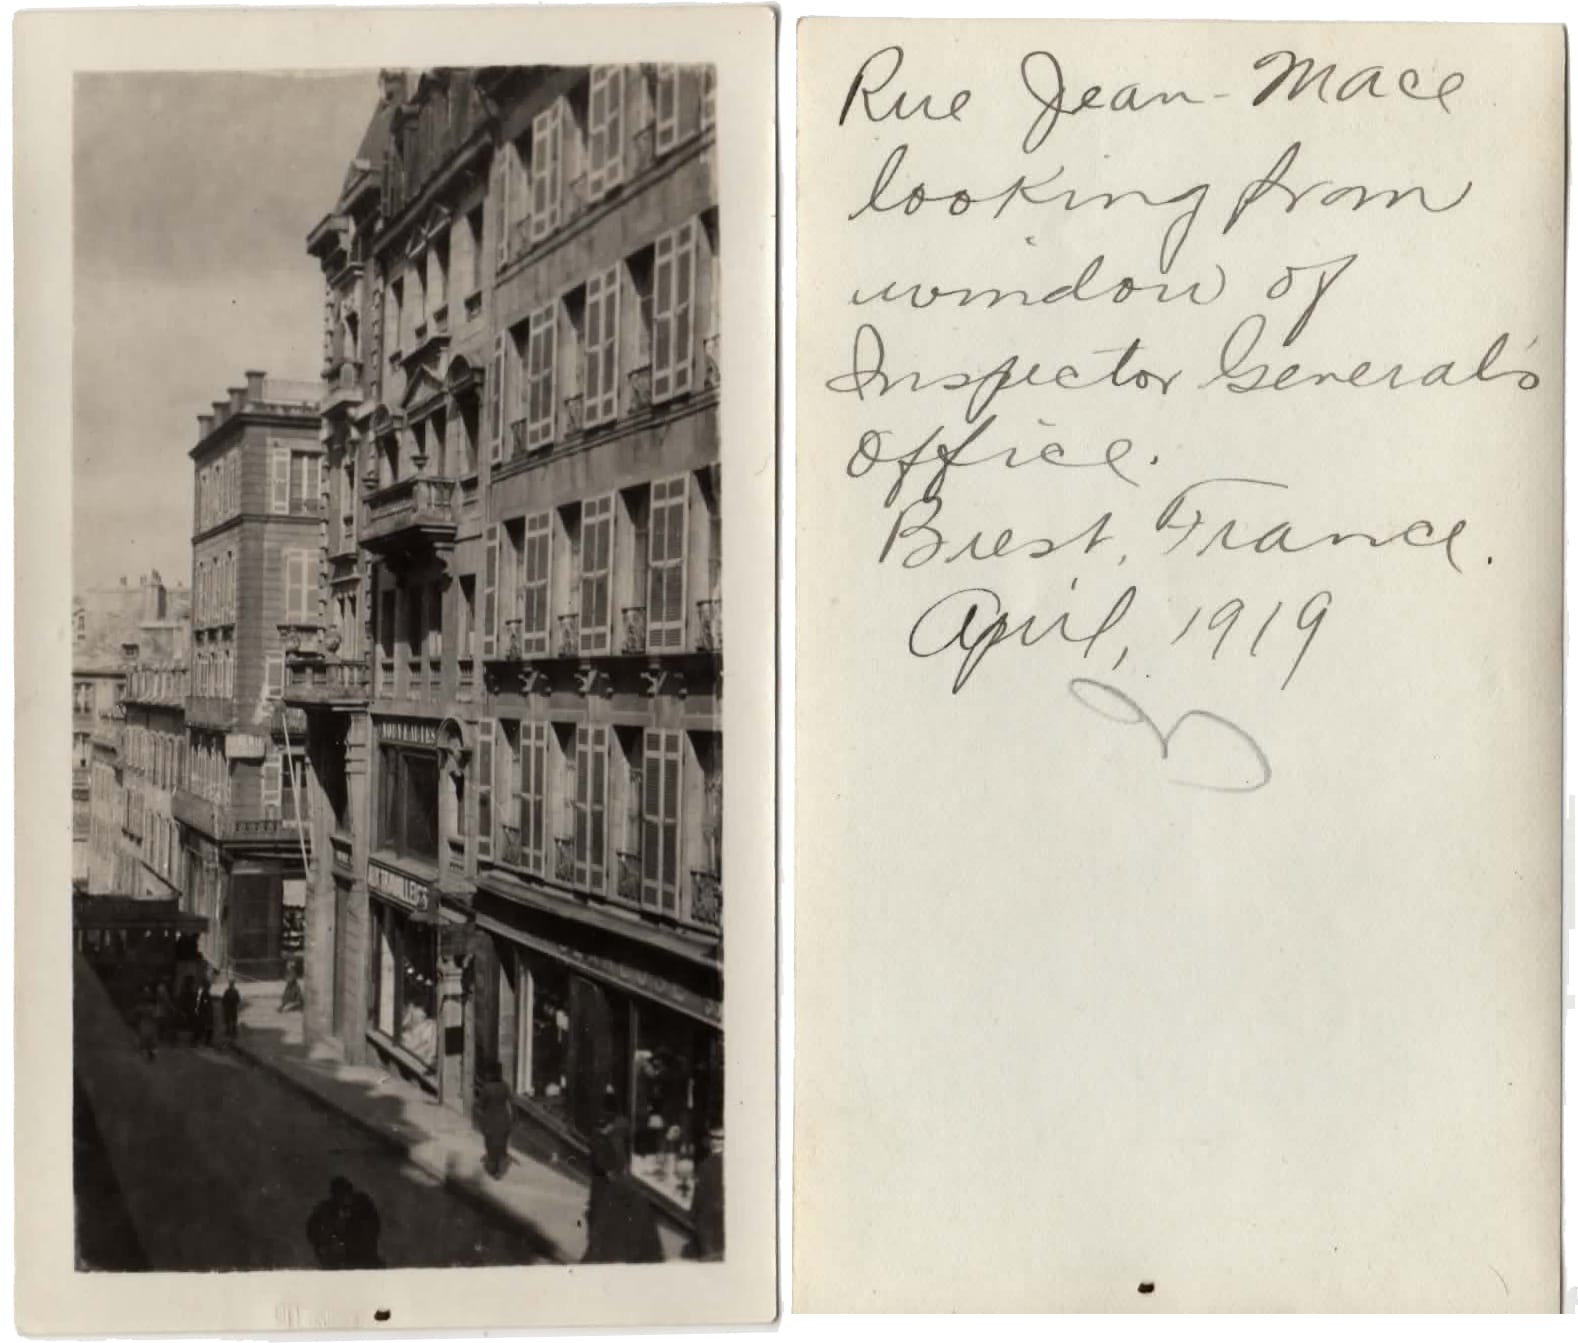 NOUVEAUTES
Rue Jean-Mace
looking from
window of
Inspector General's
Office.
Brest, France.
April, 1919